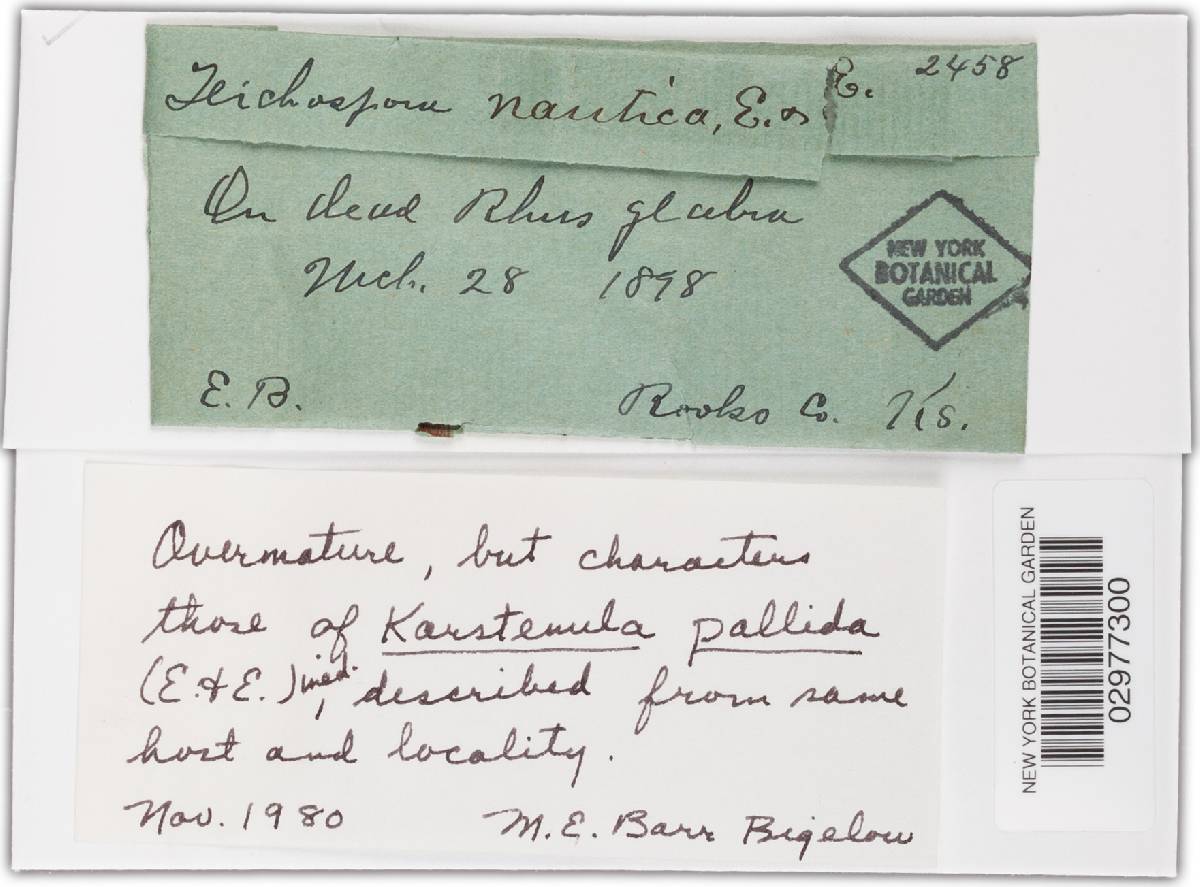 2458
Teichospora nautica, E. & E.
On dead Rhus glabra
Mch. 28 1898
NEW YORK
BOTANICAL
GARDEN
E. B.
Rooks Co. Ks.
Overmature, but characters
those of Karstenula pallida
(E. & E.) ined., described from same
host and locality.
Nov. 1980 M. E. Barr Bigelow
NEW YORK BOTANICAL GARDEN
02977300